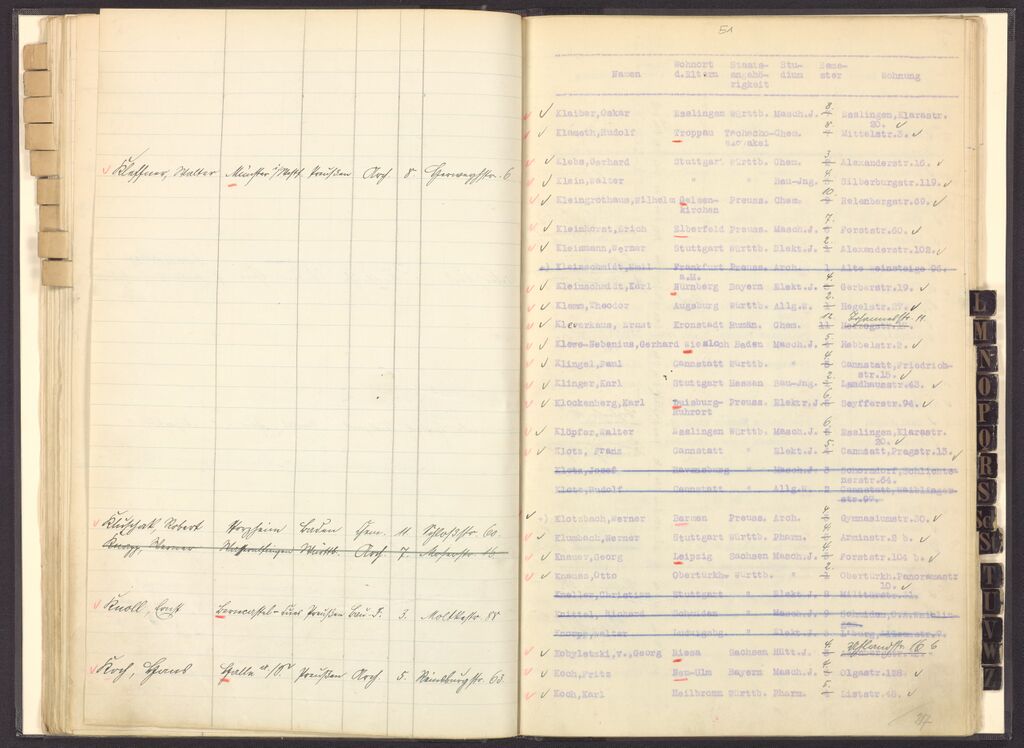 Kleffner, Walter Münster i/Westf. Preußen Arch 8 Herweghstr. 6
Robert Pforzheim Baden Chem. 11 Schloßstr. 60
Knapp Werner Wasseralfingen Württ. Arch 7. Moserstr. 16
Knoll, Ernst Berncastel-Cues Preußen Bau-J. 3. Moltkestr 88
Koch, Hans Halle a/S. Preußen Arch 5 63
51
Namen Wohnort d.Eltern Staats-angehö-rigkeit Stu-dium Seme-ster Wohnung
Klaiber,Oskar Esslingen Württb. Masch.J. 8. Esslingen,Klarastr.
20.
Klameth,Rudolf Troppau Tschecho- Chem. 8 Mittelstr.3.
slowakei
Klebs,Gerhard Stuttgart Württb. Chem. 3 Alexanderstr.16.
Klein,Walter " " Bau-Jng. 4 Silberburgstr.119.
Kleingrothaus,Wilhelm Gelsen- Preuss. Chem. 10. Relenbergstr.69.
kirchen
Kleinhorst,Erich Elberfeld Preuss. Masch.J. 7. Forststr.60.
Kleinmann,Werner Stuttgart Württb. Elekt.J. 2 Alexanderstr.102.
Kleinschmidt,Emil Frankfurt Preuss. Arch. 1 Alte Weinsteige 96.
a.M.
Kleinschmidt,Karl Nürnberg Bayern Elekt.J. 4. Gerberstr.19.
Klemm,Theodor Augsburg Württb. Allg.W. 2. Hegelstr.
Kleverkaus, Ernst Kronstadt Rumän. Chem. 12. 11 Johannesstr. 11.
Klewe-Nebenius,Gerhard Wiesloch Baden Masch.J. 5. Hebbelstr.2.
Klingel,Paul Cannstatt Württb. " 4 Cannstatt,Friedrich-
str.15.
Klinger,Karl Stuttgart Hessen Bau-Jng. 2 Landhausstr.43.
Klockenberg,Karl Duisburg- Preuss. Elektr.J. 6 Seyfferstr.94.
Ruhrort
Klöpfer,Walter Esslingen Württb. Masch.J. 6. Esslingen,Klarastr.
20.
Klotz, Franz Cannstatt " Elekt.J. 5. Cannstatt,Pragstr.13.
Klotz,Josef Ravensburg " Masch.J. 3 Schorndorf,Schlichte-
nerstr.64.
Klotz,Rudolf Cannstatt " Allg.W. 2 Cannstatt,Waiblinger
str.99.
Klotzbach,Werner Barmen Preuss. Arch. 4 Gymnasiumstr.30.
Klumbach,Werner Stuttgart Württb. Pharm. 4 Arminstr.2 b.
Knauer,Georg Leipzig Sachsen Masch.J. 4 Forststr.104 b.
Knauss,Otto Obertürkh. Württb. " 2. Obertürkh.Panoramastr
10.
Kneller,Christian Stuttgart " Elekt.J. 8
Knittel, Richard " Masch.J. 9
Knorpp,Walter Ludwigsbg. " Elekt.J. 3
Kobyletzki,v.,Georg Riesa Sachsen Hütt.J. 4. Uhlandstr. 16
Koch,Fritz Neu-Ulm Bayern Masch.J. 4. Olgastr.128.
Koch,Karl Heilbronn Württb. Pharm. 5. Liststr.48.
L
M
N
O
P
Q
R
S
Sch
St
T
U
V
W
Z